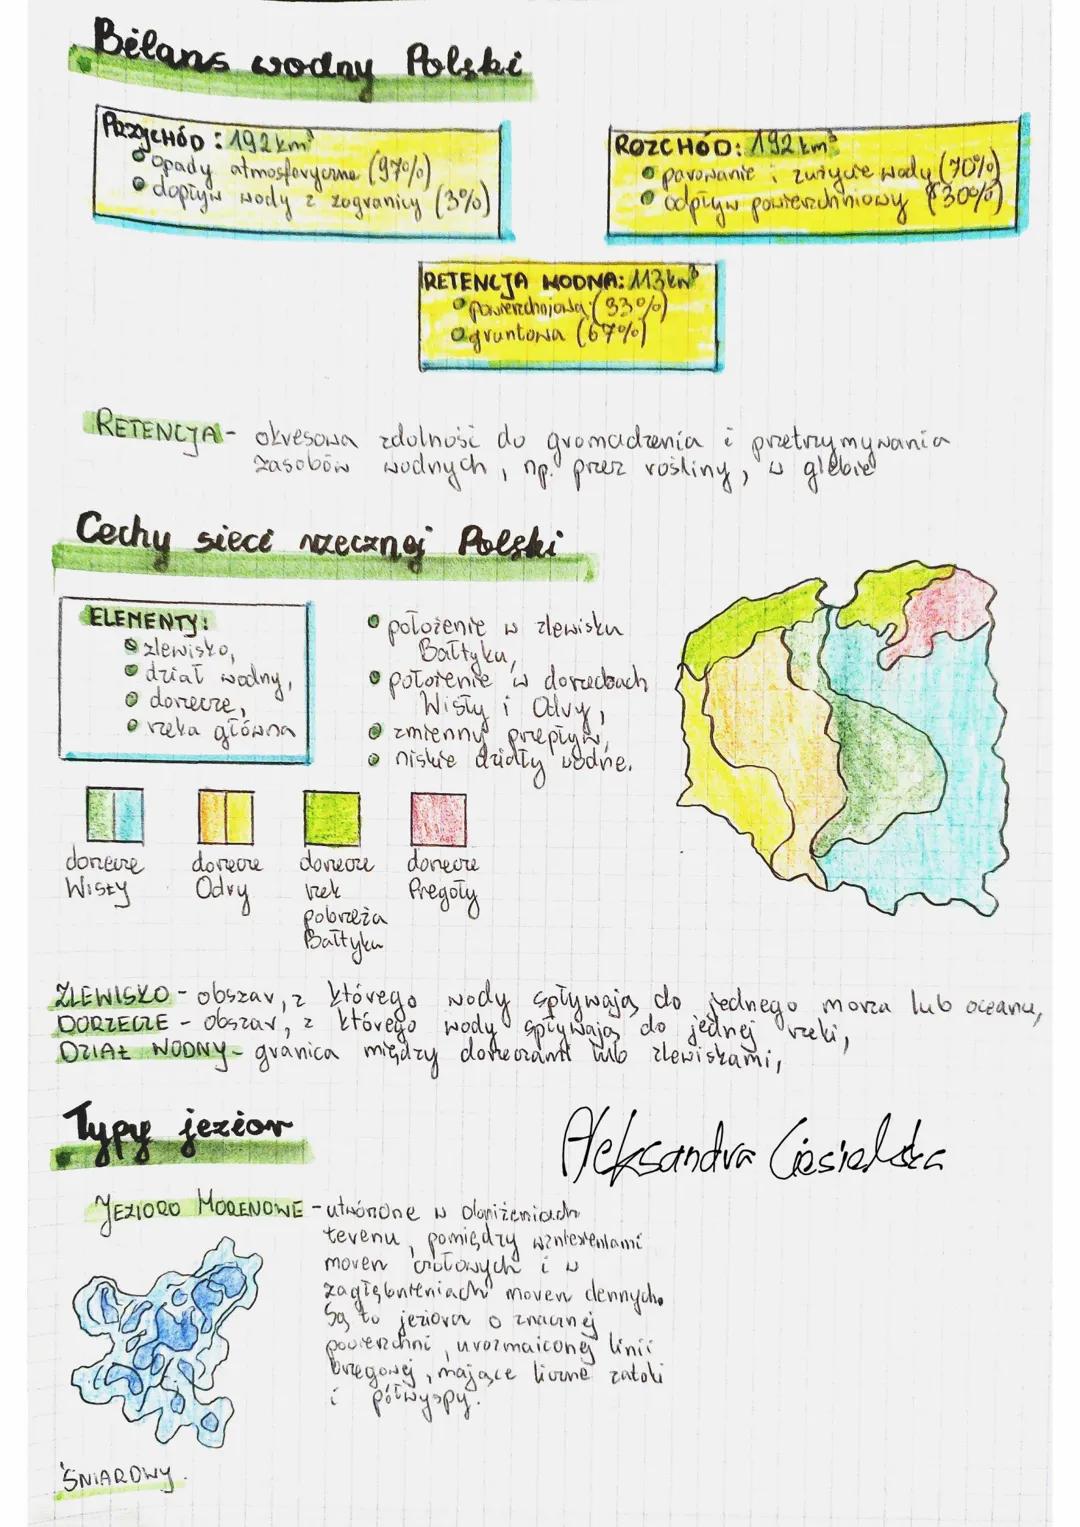 Bilans wodny Polski
PRZYCHÓD: 192 km³
opady atmosferyczne (97%)
dopływ wody z zagranicy (3%)
ROZCHÓD: 192 km³
parowanie i zużycie wody (70%)
odpływ powierzchniowy (30%)
RETENCJA WODNA: 113 km³
powierzchniowa (33%)
gruntowa (67%)
RETENCJA - okresowa zdolność do gromadzenia i przetrzymywania
zasobów wodnych, np. przez rośliny, w glebie
Cechy sieci rzecznej Polski
ELEMENTY:
zlewisko,
dział wodny,
dorzecze,
rzeka główna
położenie w zlewisku
Bałtyku,
położenie w dorzeczach
Wisły i Odry,
zmienny przepływ,
niskie działy wodne.
dorzecze
Wisły
dorzecze
Odry
dorzecze
rzek
pobrzeża
Bałtyku
dorzecze
Pregoły
ZLEWISKO - obszar, z którego wody spływają do jednego morza lub oceanu,
DORZECZE - obszar, z którego wody spływają do jednej rzeki,
DZIAŁ WODNY - granica między dorzeczami lub zlewiskami,
Typy jezior
Aleksandra Ciesielska
JEZIORO MORENOWE - utworzone w obniżeniach
terenu, pomiędzy wzniesieniami
moren czołowych i w
zagłębieniach moren dennych.
Są to jeziora o znacznej
powierzchni, urozmaiconej linii
brzegowej, mające liczne zatoki
i półwyspy.
ŚNIARDWY.